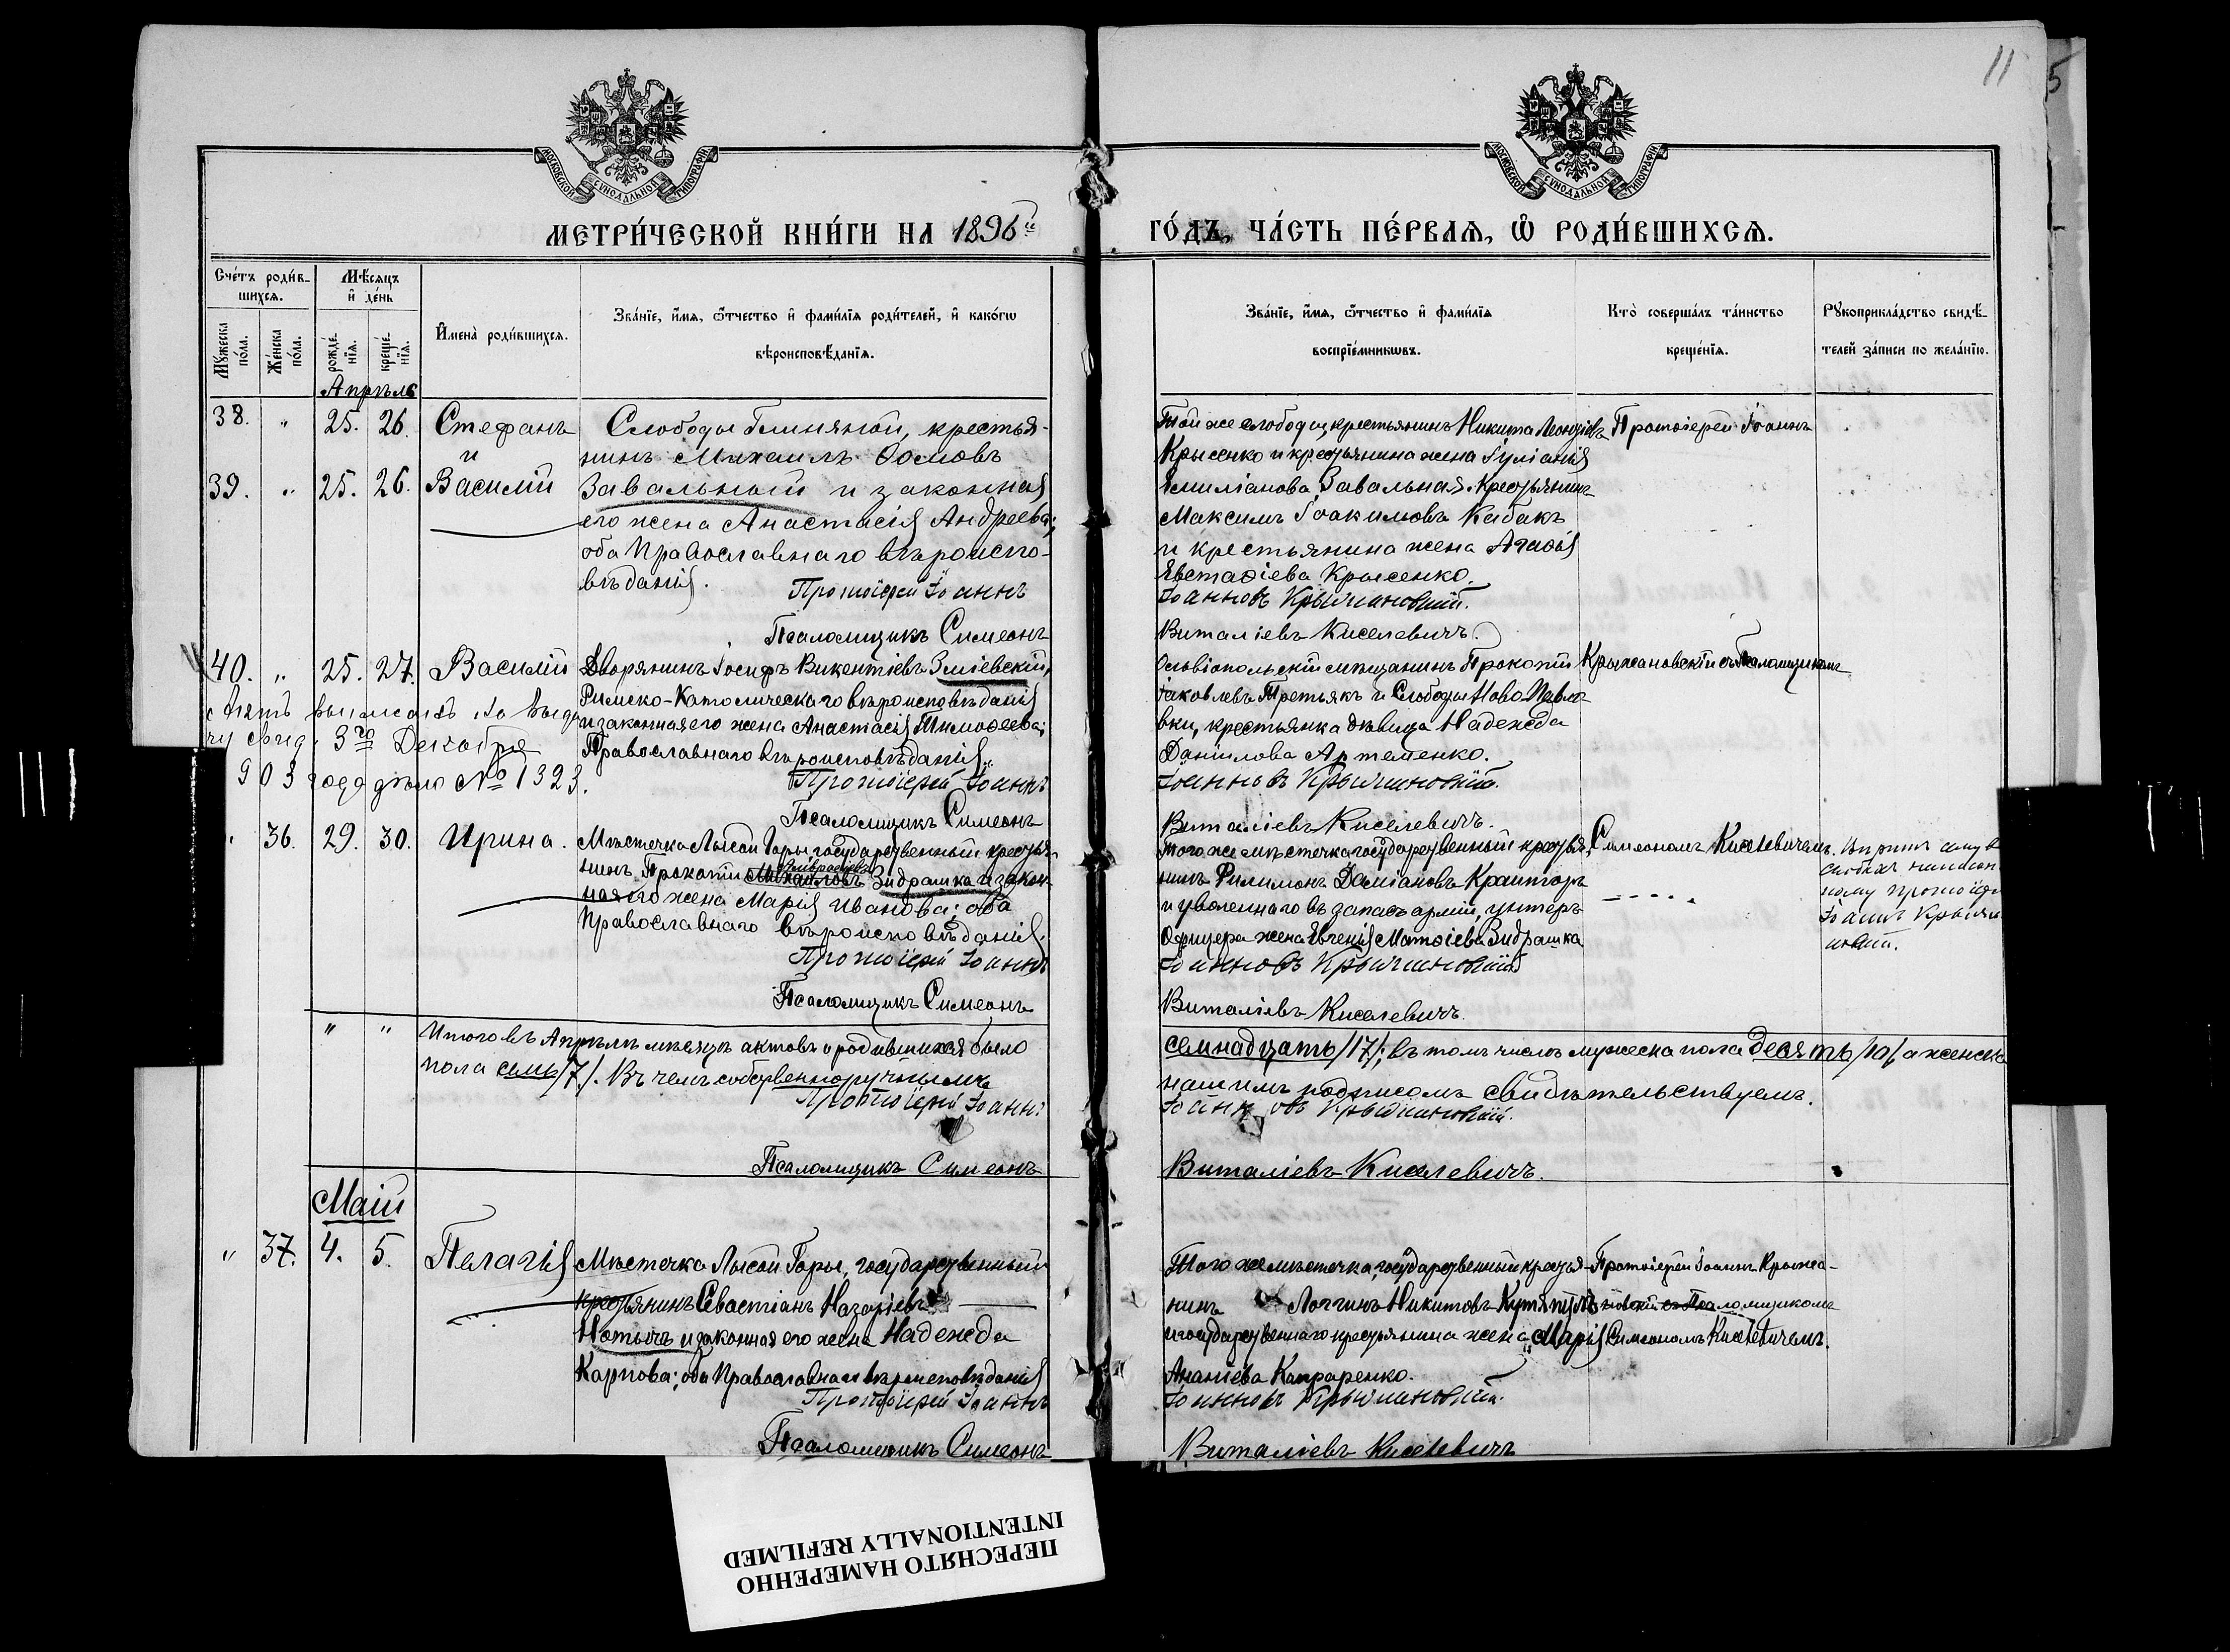 11
5
МОСКОВСКОЙ СУНОДАЛЬНОЙ ТИПОГРАФІИ
МОСКОВСКОЙ СУНОДАЛЬНОЙ ТИПОГРАФІИ
МЕТРИ́ЧЕСКОЙ КНИ́ГИ НА 1896й
ГО́ДЪ, ЧА́СТЬ ПЕ́РВАѦ, Ѽ РОДИ́ВШИХСѦ.
Сче́тъ роди́в-
шихсѧ.
Мѣ́сѧцъ
и҆ де́нь
Мꙋ́жеска
по́ла.
Же́нска
по́ла.
рожде́-
нїѧ.
креще́-
нїѧ.
И҆мена̀ роди́вшихсѧ.
Зва́нїе, и҆́мѧ, ѻ҆́тчество и҆ фами́лїѧ роди́телей, и҆ како́гѡ
вѣроисповѣ́данїѧ.
Зва́нїе, и҆́мѧ, ѻ҆́тчество и҆ фами́лїѧ
воспрїе́мникѡвъ.
Кто̀ соверша́лъ та́инство
креще́нїѧ.
Рꙋкоприкла́дство свидѣ́-
телей за́писи по жела́нїю.
Апрѣль
38. " 25. 26. Стефанъ
и
39. " 25. 26. Василій
Слободы Глиняной, крестья-
нинъ Михаилъ Ѳомовъ
Завальный и законная
его жена Анастасія Андреева;
оба Православнаго вѣроиспо-
вѣданія.
Протоіерей Іоаннъ
Псаломщикъ Симеонъ
Той же слободы, крестьянинъ Никита Леонтіевъ
Крысенко и крестьянина жена Іуліанія
Емиліанова Завальная. Крестьянинъ
Максимъ Іоакимовъ Кабакъ
и крестьянина жена Агаѳія
Евстаѳіева Крысенко.
Іоанновъ Крыжановскій.
Виталіевъ Киселевичъ.
Протоіерей Іоаннъ
40. " 25. 27. Василій
Дворянинъ Іосифъ Викентіевъ Зміевскій,
Римско-Католическаго вѣроисповѣданія
и законная его жена Анастасія Тимоѳеева;
Православнаго вѣроисповѣданія.
Протоіерей Іоаннъ
Псаломщикъ Симеонъ
3го Декабря
903 года дѣло № 1323.
Ольвіопольскій мѣщанинъ Прокопій
Іаковлевъ Третьякъ и Слободы Ново Павлов-
вки, крестьянка дѣвица Надежда
Даніилова Артеменко.
Іоанновъ Крыжановскій.
Виталіевъ Киселевичъ.
Крыжановскій съ Псаломщикомъ
" 36. 29. 30. Ирина.
Мѣстечка Лысой Горы государственный крестья-
нинъ Прокопій Михаиловъ Зидрашка и закон-
ная его жена Марія Иванова; оба
Православнаго вѣроисповѣданія.
Протоіерей Іоаннъ
Псаломщикъ Симеонъ
Того же мѣстечка государственный крестья-
нинъ Филимонъ Даміановъ Крамторъ
и уволеннаго въ запасъ арміи, унтеръ
Офицера жена Евгенія Матѳіева Зидрашка
Іоанновъ Крыжановскій
Виталіевъ Киселевичъ.
Симеономъ Киселевичемъ.
Іоаннъ
" " Итого въ Апрѣлѣ мѣсяцѣ актовъ о родившихся было
семнадцать /17/; въ томъ числѣ мужеска пола десять /10/ а женска
пола семь /7/. Въ чемъ собственноручнымъ
нашимъ подписомъ свидѣтельствуемъ.
Протоіерей Іоаннъ
Іоанновъ Крыжановскій.
Псаломщикъ Симеонъ
Виталіевъ Киселевичъ.
Маій
" 37. 4. 5. Пелагія
Мѣстечка Лысой Горы, государственный
крестьянинъ Севастіанъ Назаріевъ
Нотычъ и законная его жена Надежда
Карпова; оба Православнаго вѣроисповѣданія
Протоіерей Іоаннъ
Псаломщикъ Симеонъ
Того же мѣстечка, государственный крестья-
нинъ Логгинъ Никитовъ Кутяпуло
и государственнаго крестьянина жена Марія
Ананіева Капраренко.
Іоанновъ Крыжановскій.
Виталіевъ Киселевичъ
Протоіерей Іоаннъ Крыжа-
новскій съ Псаломщикомъ
Симеономъ Киселевичемъ.
ПЕРЕСНЯТО НАМЕРЕННО
INTENTIONALLY REFILMED